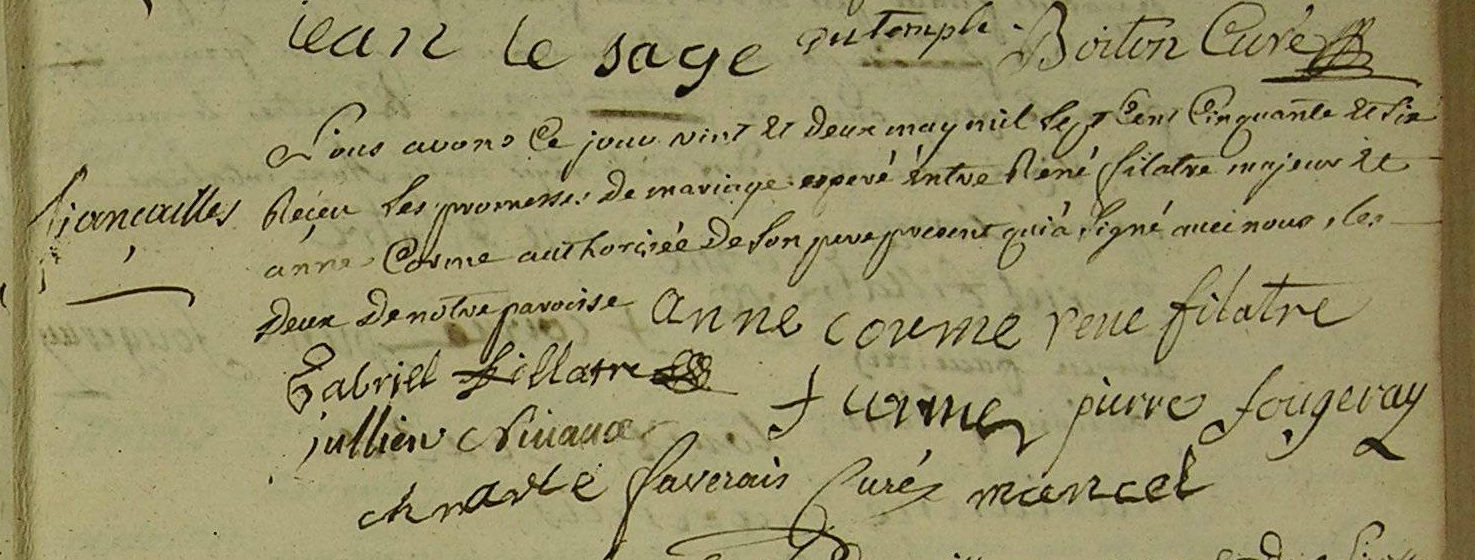 jean le sage du temple Boiton Curé
Nous avons Ce jour vint et deux may mil sept Cent Cinquante et six
fiancailles
Reçeu les promesses de mariage espéré éntre Réné filatre majeur et
anne Corme authorisée de son pere present qui à signé avec nous, les
deux de notre paroisse anne corme rene filatre
Gabriel fillatre
f corme pierre fougeray
jullien
faverais Curé mancel